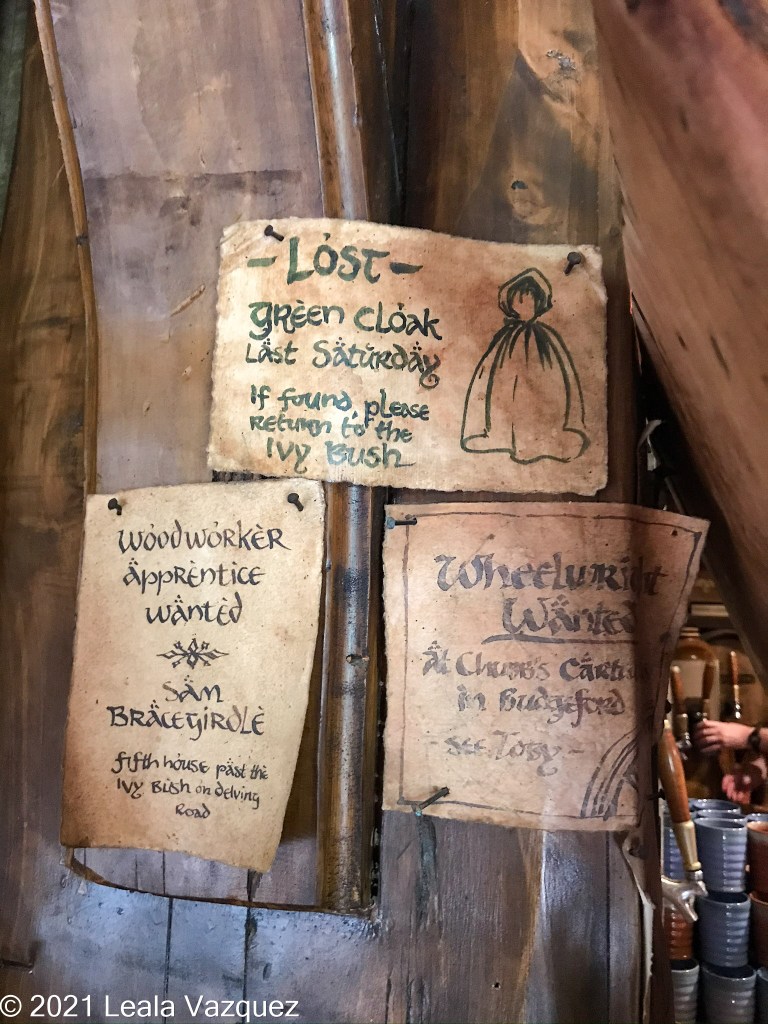 - Lost -
Green Cloak
Last Saturday
If found, please
return to the
Ivy Bush
Woodworker
Apprentice
Wanted
Sam
Bracegirdle
fifth house past the
Ivy Bush on delving
Road
Wheelwright
Wanted
At Chubb's
in Budgeford
- See Toby -
© 2021 Leala Vazquez